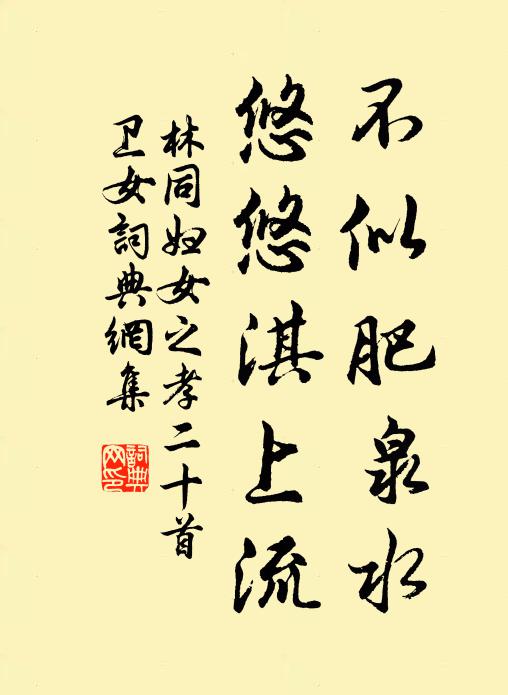 不似肥泉水
悠悠淇上流
林同妇女之孝二十首
卫女詞典網集
詞典
网印